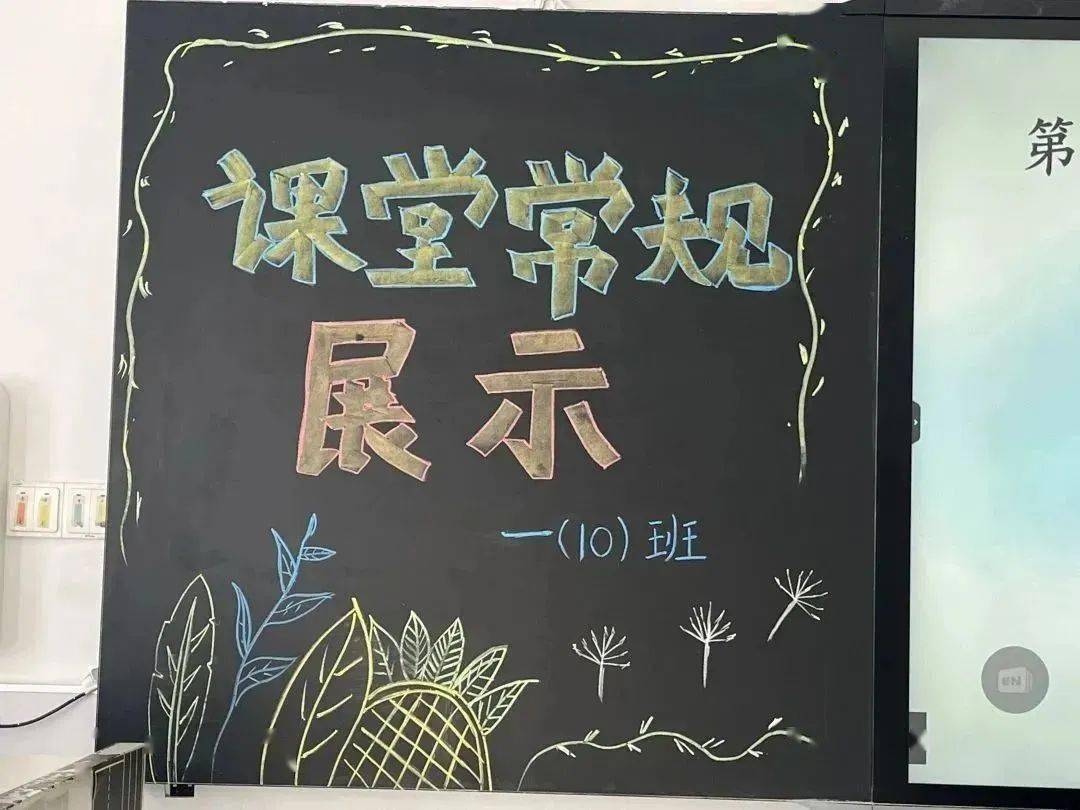 课堂常规
展示
一(10)班
第